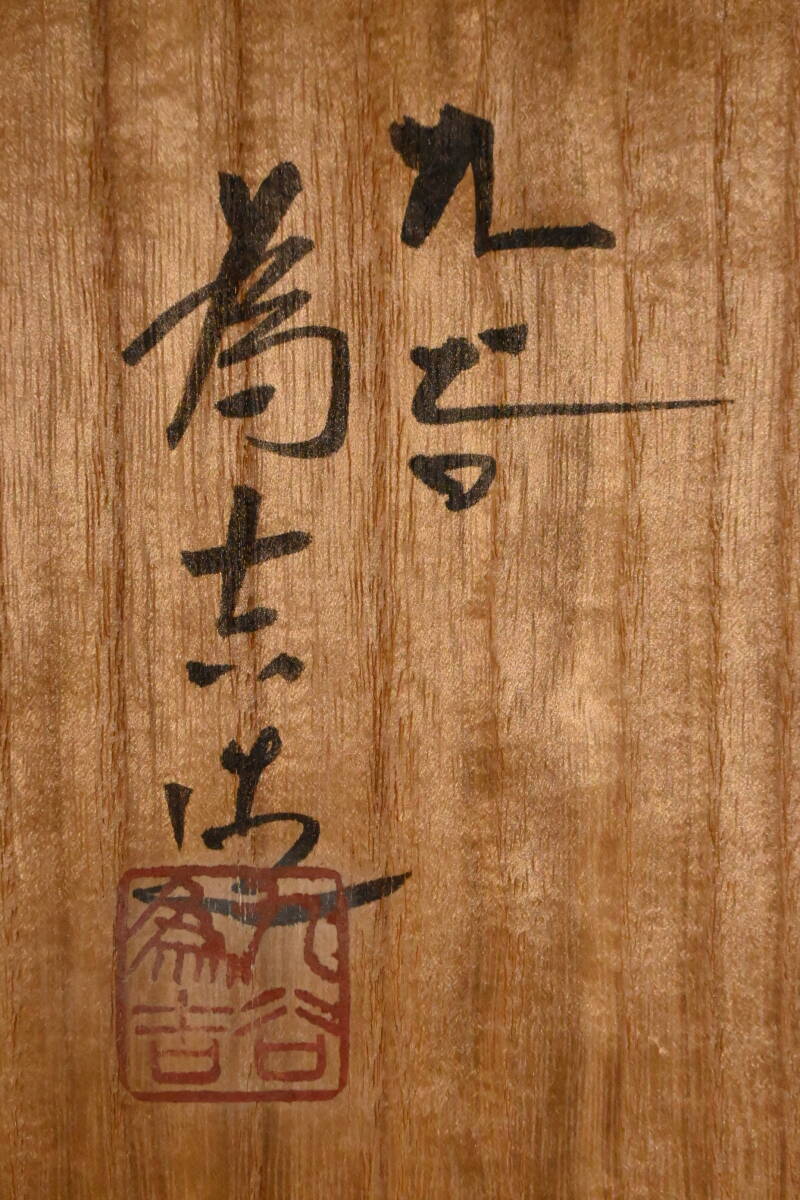 九谷
為吉造
九谷
為吉